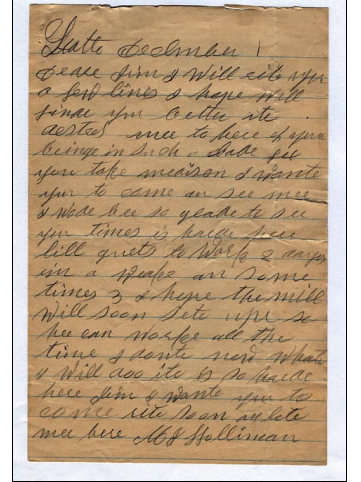 December 1
Deare Jim I Will rite you
a few lines I hope Will
finde you better ite
mee to here of you
beinge in Such a Shabe
you take I Wante
you to come an see mee
I Wode bee so glade to See
you times is harde here
bill gets to Work 2 days
in a Weake an Some
times 3 I hope the mill
Will Soon Sete up so
hee can Worke all the
time I donte now What
I Will doo ite is so harde
here Jim I Wante you to
come rite soon an lete
mee here M J Holliman